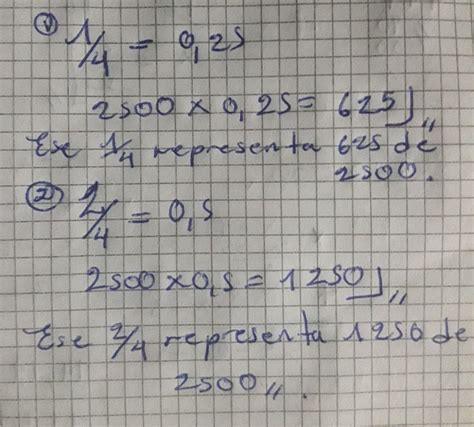 ① 1/4 = 0,25
2500 × 0,25 = 625⌋,,
Ese 1/4 representa 625 de
2500.
② 2/4 = 0,5
2500 × 0,5 = 1250⌋,,
Ese 2/4 representa 1250 de
2500,,.